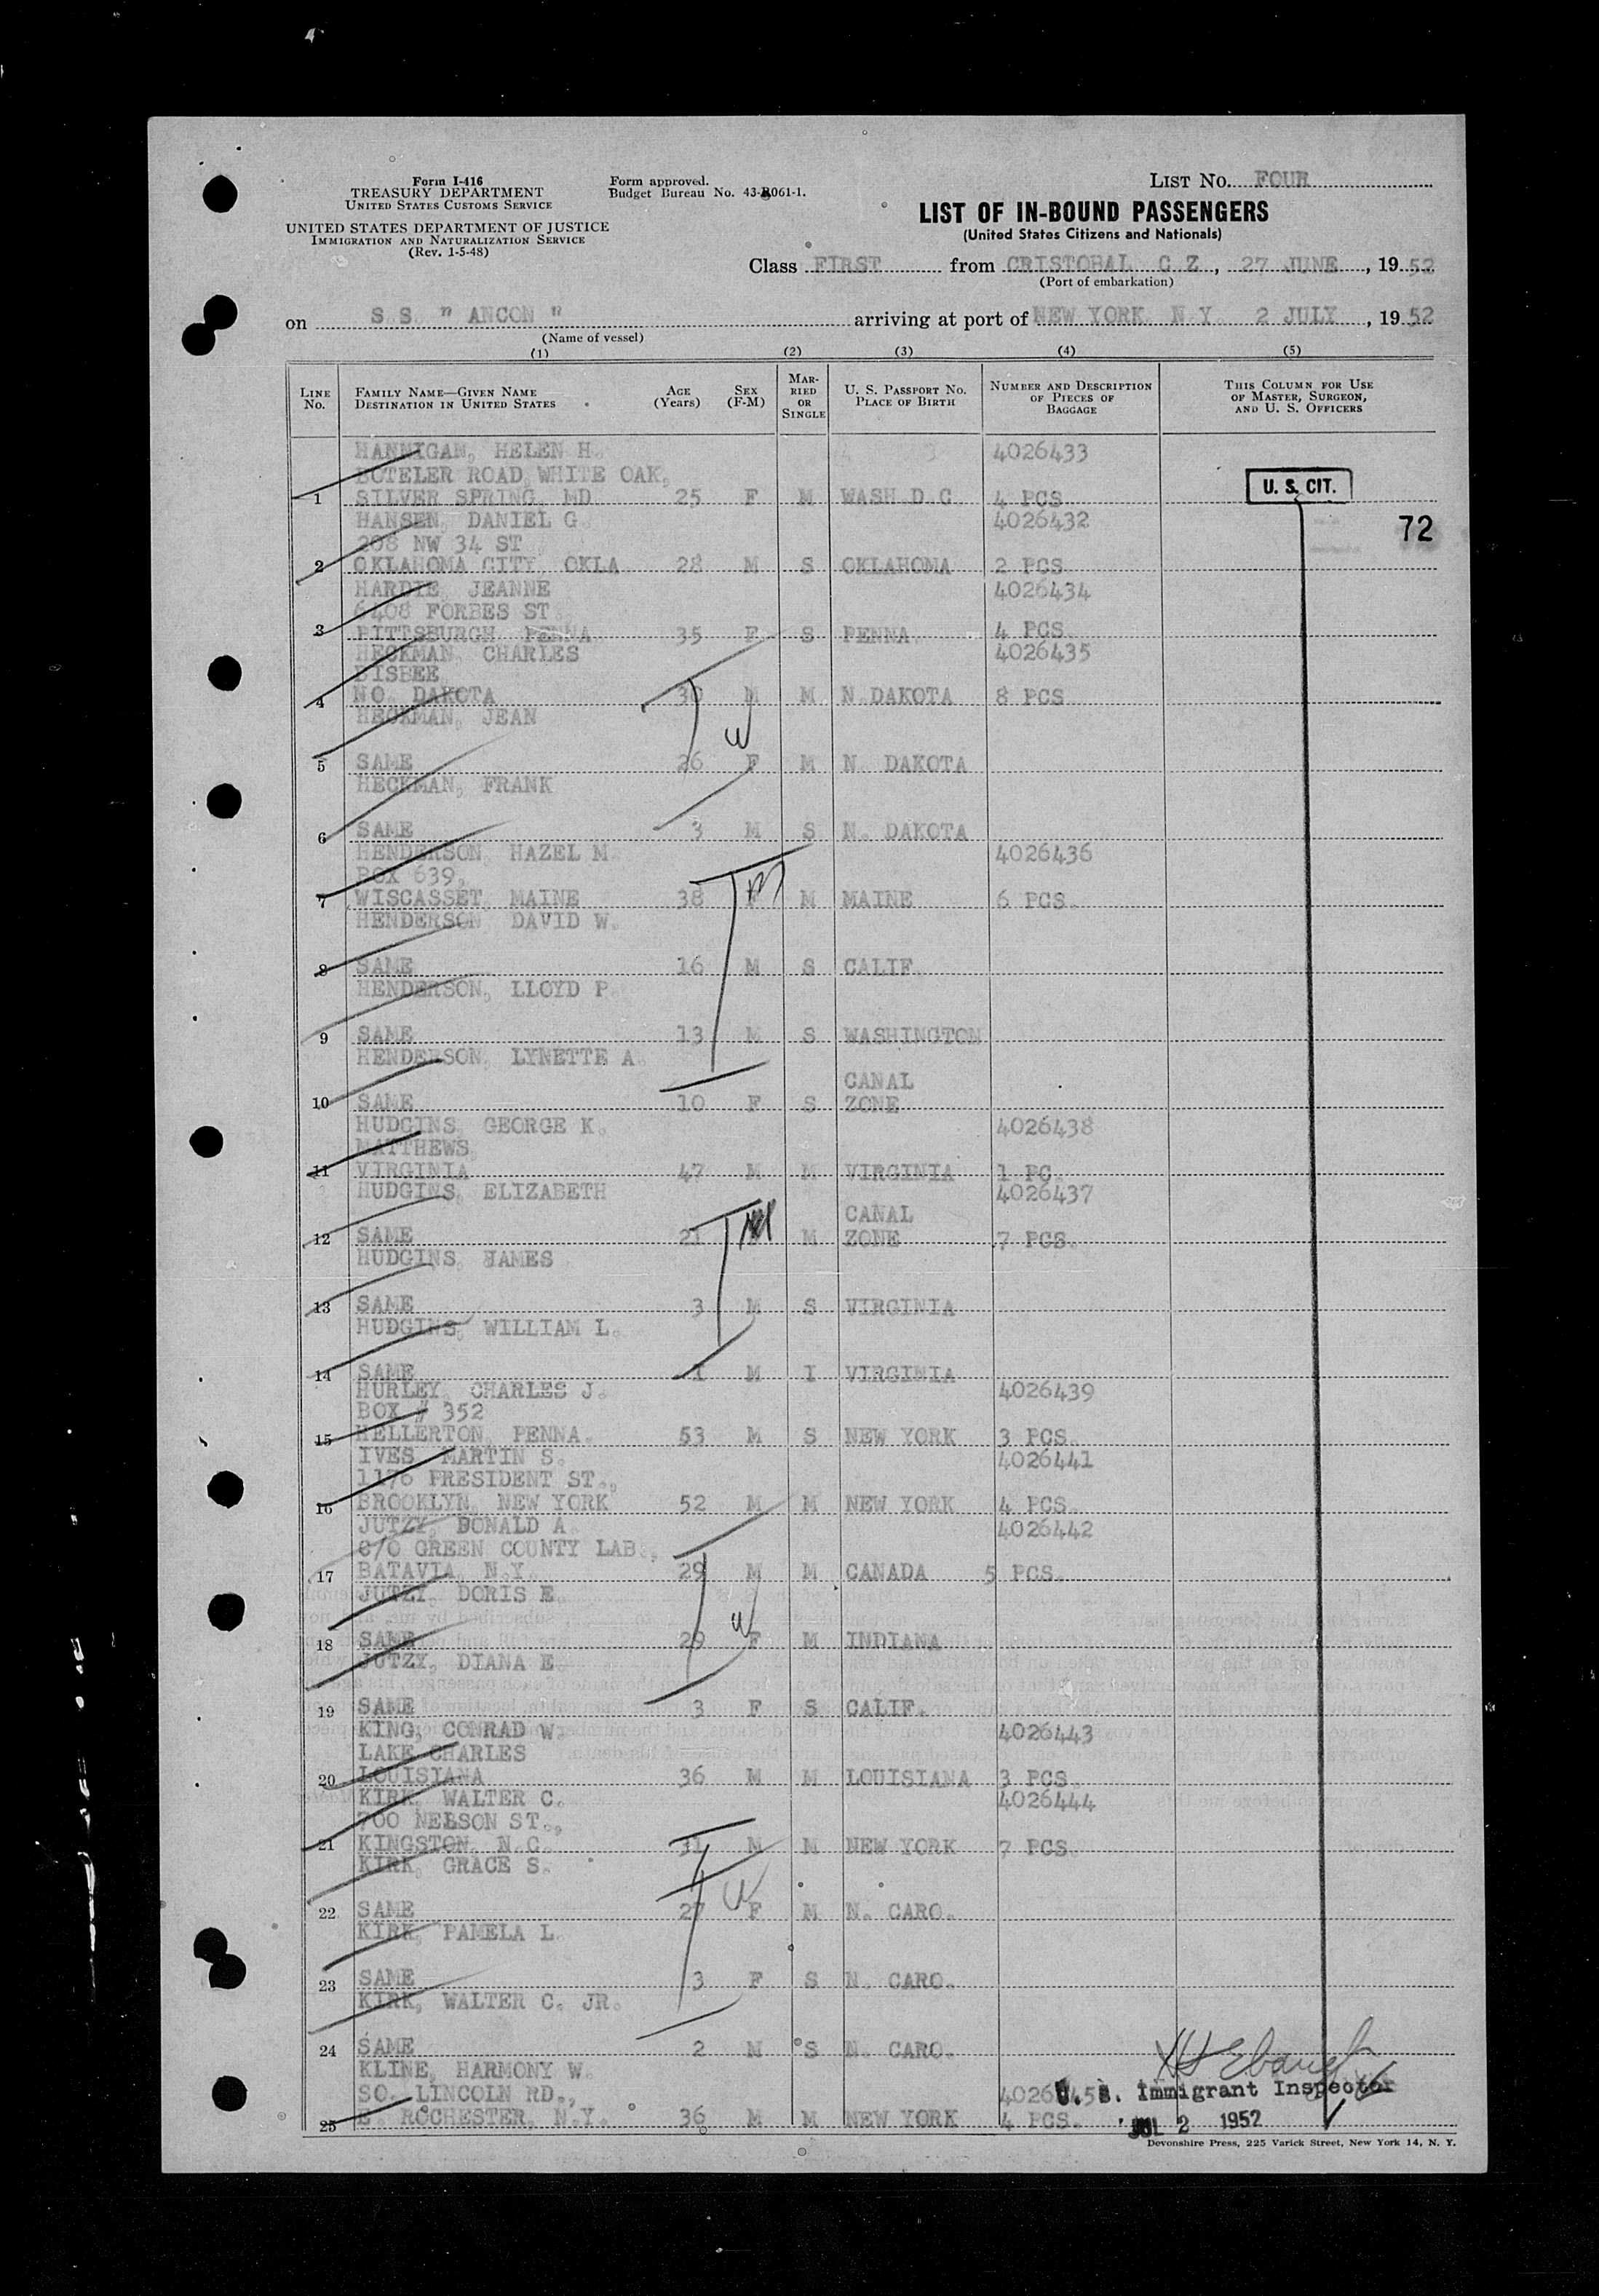 Form I-416
TREASURY DEPARTMENT
UNITED STATES CUSTOMS SERVICE
UNITED STATES DEPARTMENT OF JUSTICE
IMMIGRATION AND NATURALIZATION SERVICE
(Rev. 1-5-48)
Form approved.
Budget Bureau No. 43-R061-1.
LIST NO. FOUR
LIST OF IN-BOUND PASSENGERS
(United States Citizens and Nationals)
Class FIRST from CRISTOBAL C Z, 27 JUNE, 1952
(Port of embarkation)
on S.S. " ANCON " arriving at port of NEW YORK N.Y. 2 JULY, 1952
(Name of vessel)
(1) (2) (3) (4) (5)
LINE NO. FAMILY NAME—GIVEN NAME DESTINATION IN UNITED STATES AGE (YEARS) SEX (F-M) MARRIED OR SINGLE U. S. PASSPORT NO. PLACE OF BIRTH NUMBER AND DESCRIPTION OF PIECES OF BAGGAGE THIS COLUMN FOR USE OF MASTER, SURGEON, AND U. S. OFFICERS
HANNIGAN, HELEN H. 4026433
BOTELER ROAD, WHITE OAK,
1 SILVER SPRING MD 25 F M WASH D C 4 PCS
U. S. CIT.
HANSEN, DANIEL G 4026432
72
208 NW 34 ST
2 OKLAHOMA CITY OKLA 28 M S OKLAHOMA 2 PCS
HARDIE, JEANNE 4026434
6408 FORBES ST
3 PITTSBURGH PENNA 35 F S PENNA 4 PCS
HECKMAN, CHARLES 4026435
BISBEE
4 NO. DAKOTA 30 M M N.DAKOTA 8 PCS
HECKMAN, JEAN
W
5 SAME 26 F M N. DAKOTA
HECKMAN, FRANK
6 SAME 3 M S N. DAKOTA
HENDERSON, HAZEL M. 4026436
BOX 639,
7 WISCASSET, MAINE 38 F M MAINE 6 PCS.
HENDERSON DAVID W.
8 SAME 16 M S CALIF.
HENDERSON, LLOYD P.
9 SAME 13 M S WASHINGTON
HENDERSON, LYNETTE A.
CANAL
10 SAME 10 F S ZONE
HUDGINS, GEORGE K. 4026438
MATTHEWS,
11 VIRGINIA 47 M M VIRGINIA 1 PC.
HUDGINS, ELIZABETH 4026437
CANAL
12 SAME 21 M ZONE 7 PCS.
HUDGINS, JAMES
13 SAME 3 M S VIRGINIA
HUDGINS, WILLIAM L.
14 SAME 1 M I VIRGINIA
HURLEY, CHARLES J. 4026439
BOX # 352
15 HELLERTON, PENNA. 53 M S NEW YORK 3 PCS.
IVES, MARTIN S. 4026441
1176 PRESIDENT ST.,
16 BROOKLYN, NEW YORK 52 M M NEW YORK 4 PCS.
JUTZY, DONALD A. 4026442
C/O GREEN COUNTY LAB.,
17 BATAVIA, N.Y. 29 M M CANADA 5 PCS.
JUTZY, DORIS E.
W
18 SAME 29 F M INDIANA
JUTZY, DIANA E.
19 SAME 3 F S CALIF.
KING, CONRAD W. 4026443
LAKE CHARLES
20 LOUISIANA 36 M M LOUISIANA 3 PCS.
KIRK, WALTER C. 4026444
700 NELSON ST.,
21 KINGSTON, N.C. 31 M M NEW YORK 7 PCS.
KIRK, GRACE S.
W
22 SAME 27 F M N. CARO.
KIRK, PAMELA L.
23 SAME 3 F S N. CARO.
KIRK, WALTER C. JR.
24 SAME 2 M S N. CARO.
KLINE, HARMONY W.
SO. LINCOLN RD.,
U. S. Immigrant Inspector
25 E. ROCHESTER, N.Y. 36 M M NEW YORK 4 PCS.
JUL 2 1952
Devonshire Press, 225 Varick Street, New York 14, N. Y.